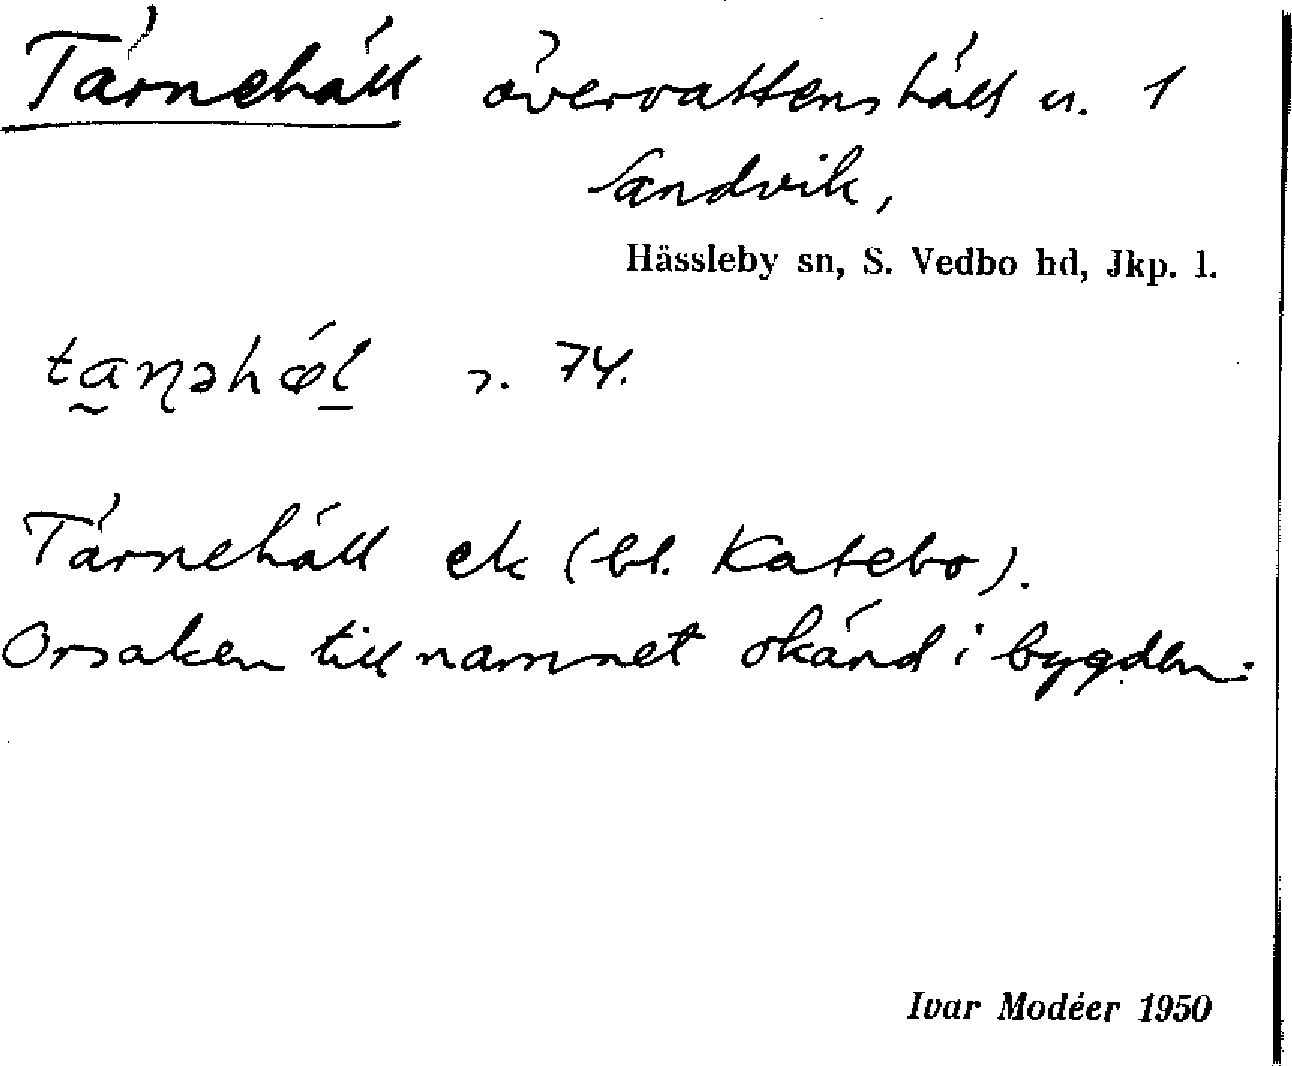 Tärnehäll övervattenshäll u. 1
Sandvik,
Hässleby sn, S. Vedbo hd, Jkp. l.
s. 74.
Tärnehäll ek (bl. Katebo).
Orsaken till namnet okänd i bygden.
Ivar Modéer 1950